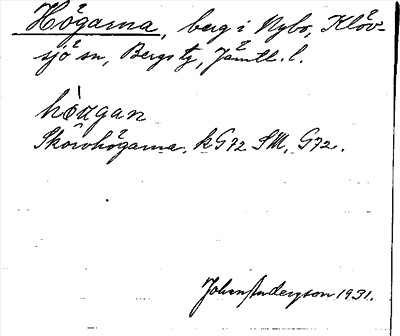 Högarna, berg i Nybo, Klöv-
sjö sn, Bergs tg, Jämtl. l.
hö̀ᴈgan
Skörvhögarna. k G 72 SM, G 72.
Johan Anderson 1931.